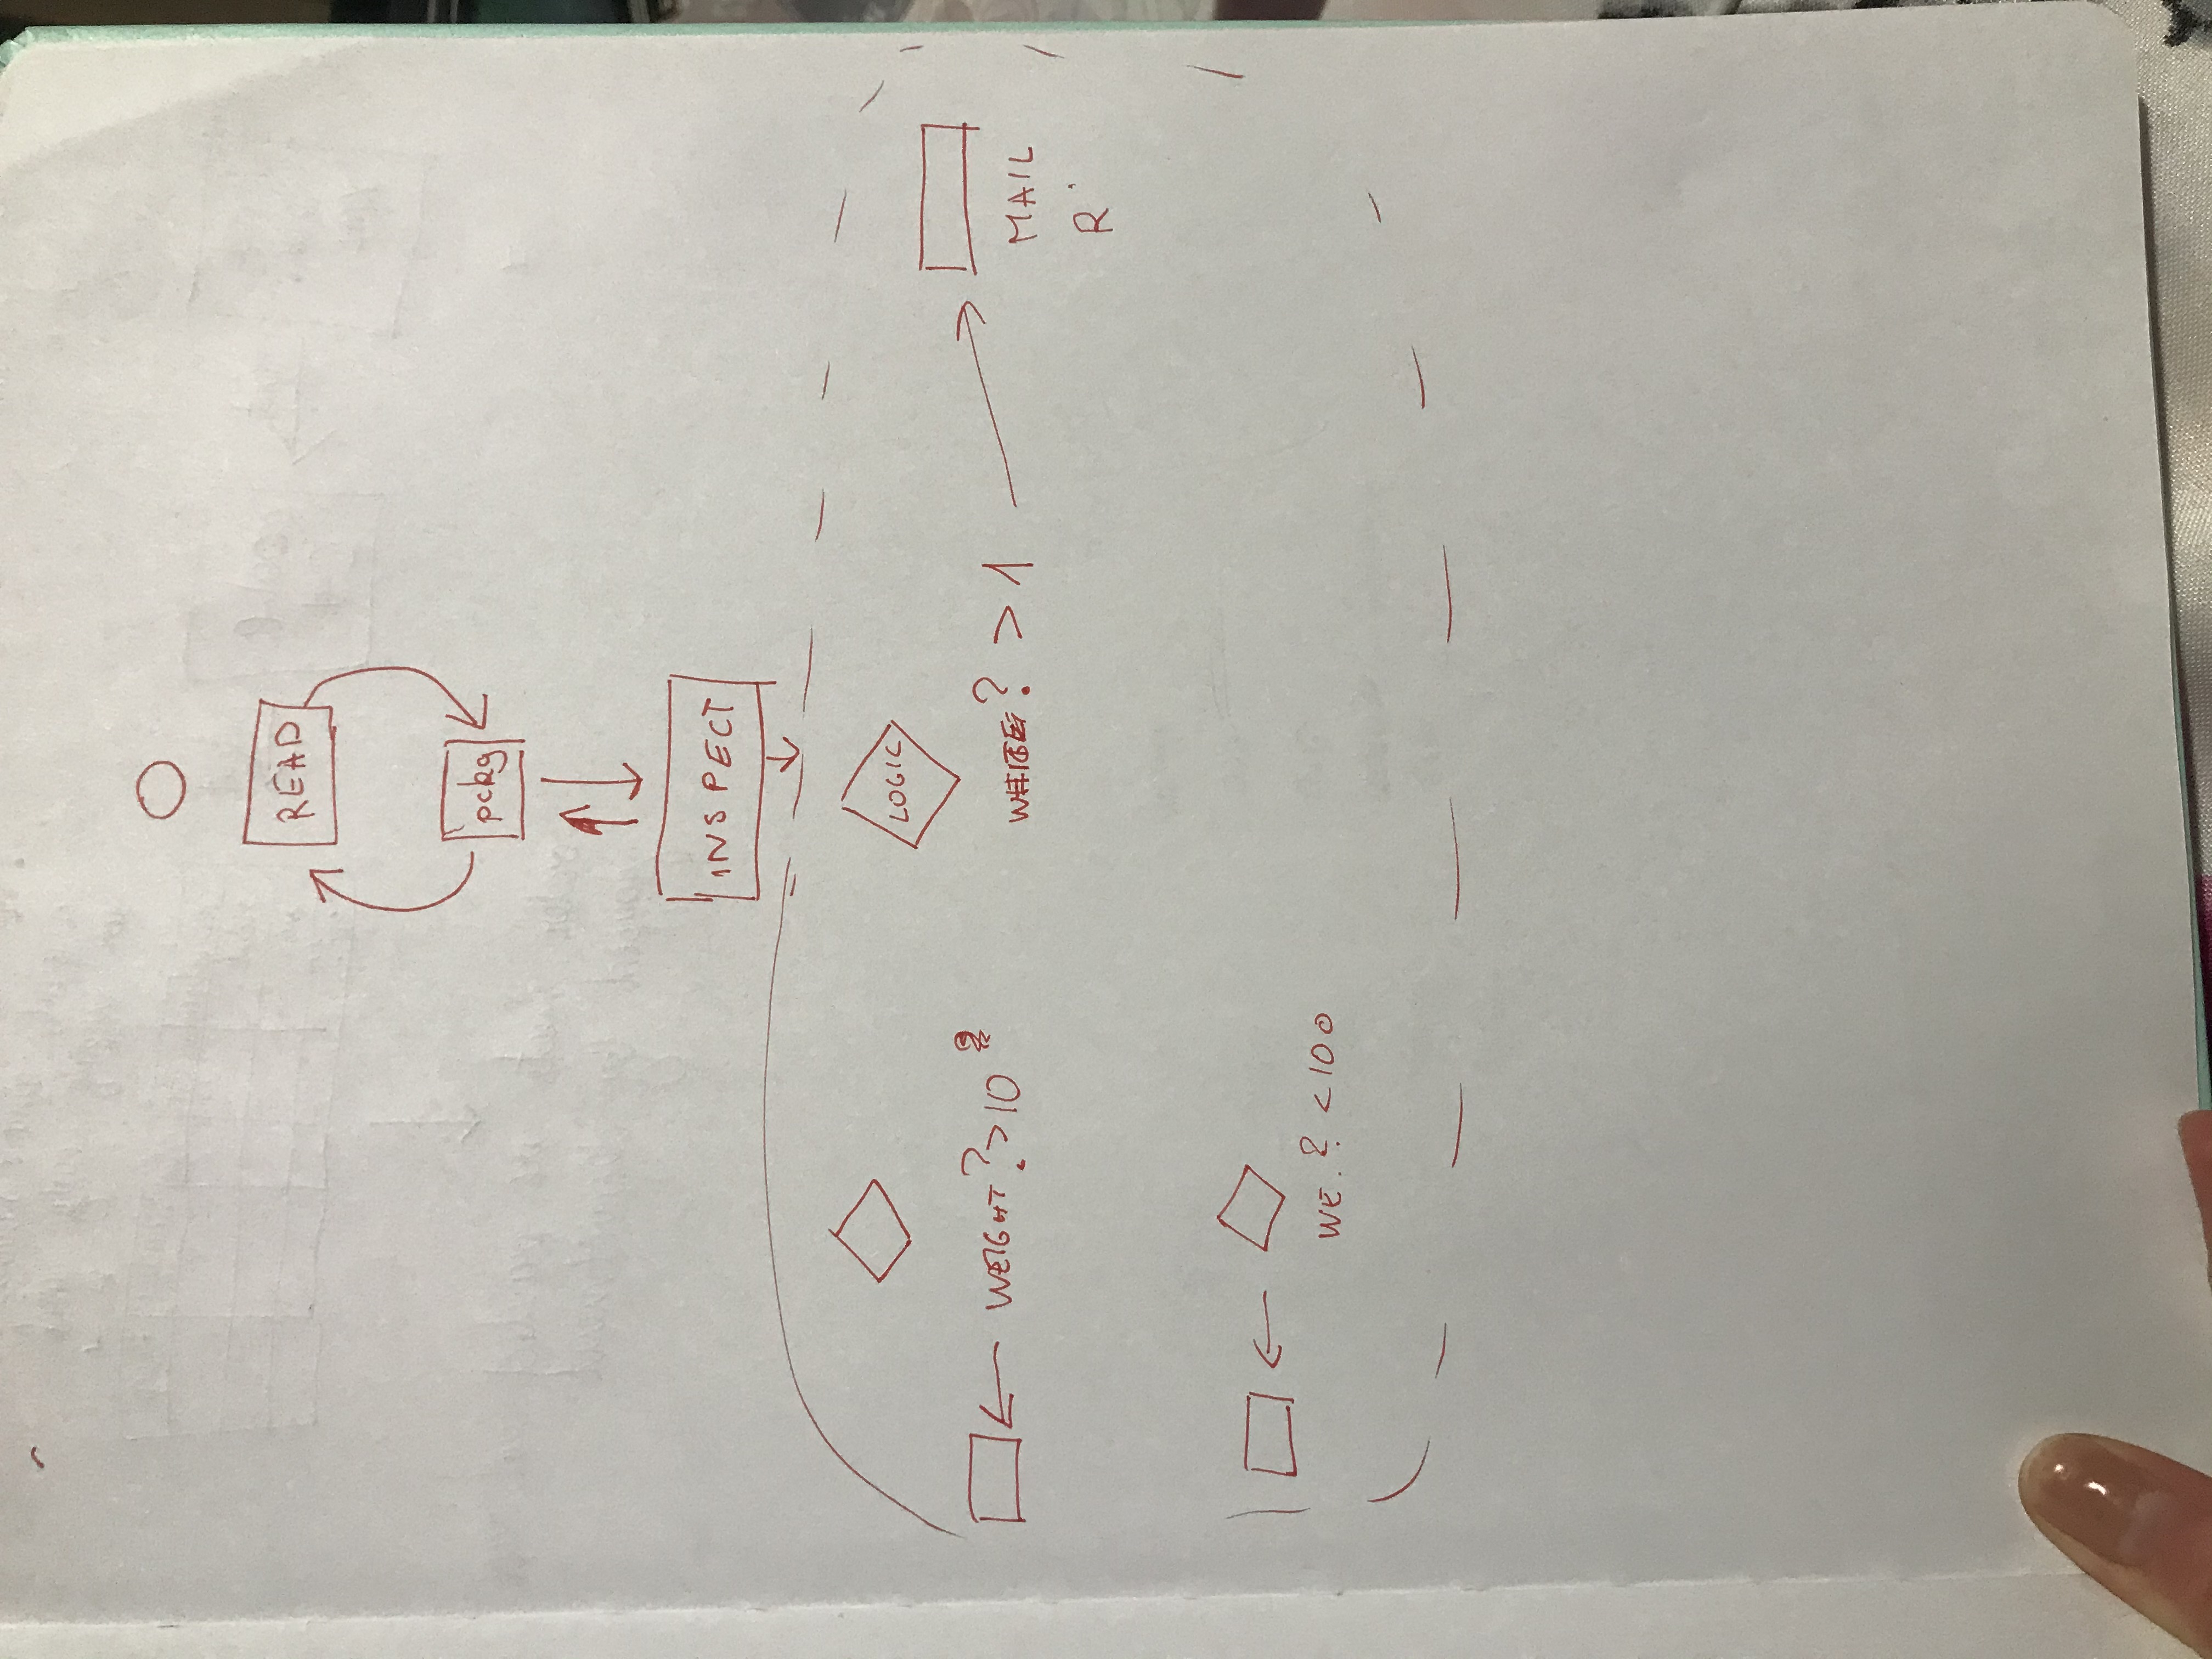 READ
pckg
INSPECT
LOGIC
WEIGHT ? > 10
? > 1
MAIL
R
WE. ? < 100